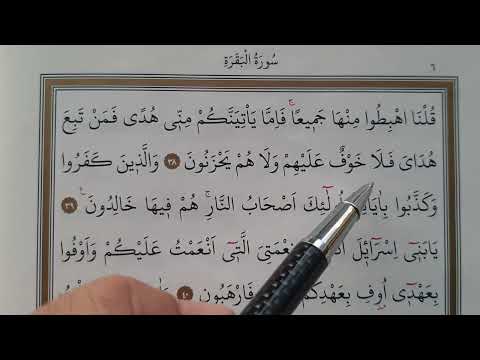 سُورَةُ الْبَقَرَةِ ٦
قُلْنَا اهْبِطُوا مِنْهَا جَمٖيعًاۚ فَاِمَّا يَاْتِيَنَّكُمْ مِنّٖى هُدًى فَمَنْ تَبِعَ
هُدَاىَ فَلَا خَوْفٌ عَلَيْهِمْ وَلَا هُمْ يَحْزَنُونَ ٣٨ وَالَّذٖينَ كَفَرُوا
وَكَذَّبُوا لٰٓئِكَ اَصْحَابُ النَّارِۚ هُمْ فٖيهَا خَالِدُونَ ٣٩
يَابَنٖٓى اِسْرَٓائٖلَ نِعْمَتِىَ الَّتٖٓى اَنْعَمْتُ عَلَيْكُمْ وَاَوْفُوا
بِعَهْدٖٓى اُوفِ بِعَهْدِكُمْ فَارْهَبُونِ ٤٠